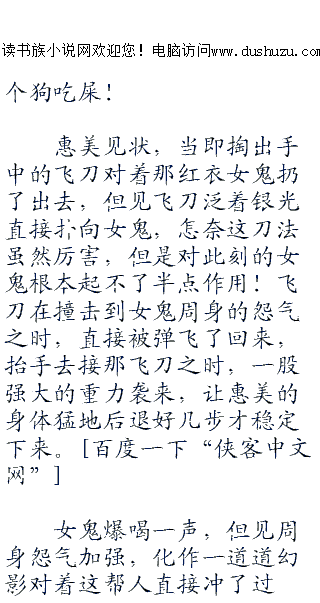 读书族小说网欢迎您！电脑访问www.dushuzu.com
个狗吃屎！
惠美见状，当即掏出手
中的飞刀对着那红衣女鬼扔
了出去，但见飞刀泛着银光
直接扑向女鬼，怎奈这刀法
虽然厉害，但是对此刻的女
鬼根本起不了半点作用！飞
刀在撞击到女鬼周身的怨气
之时，直接被弹飞了回来，
抬手去接那飞刀之时，一股
强大的重力袭来，让惠美的
身体猛地后退好几步才稳定
下来。[百度一下“侠客中文
网”]
女鬼爆喝一声，但见周
身怨气加强，化作一道道幻
影对着这帮人直接冲了过